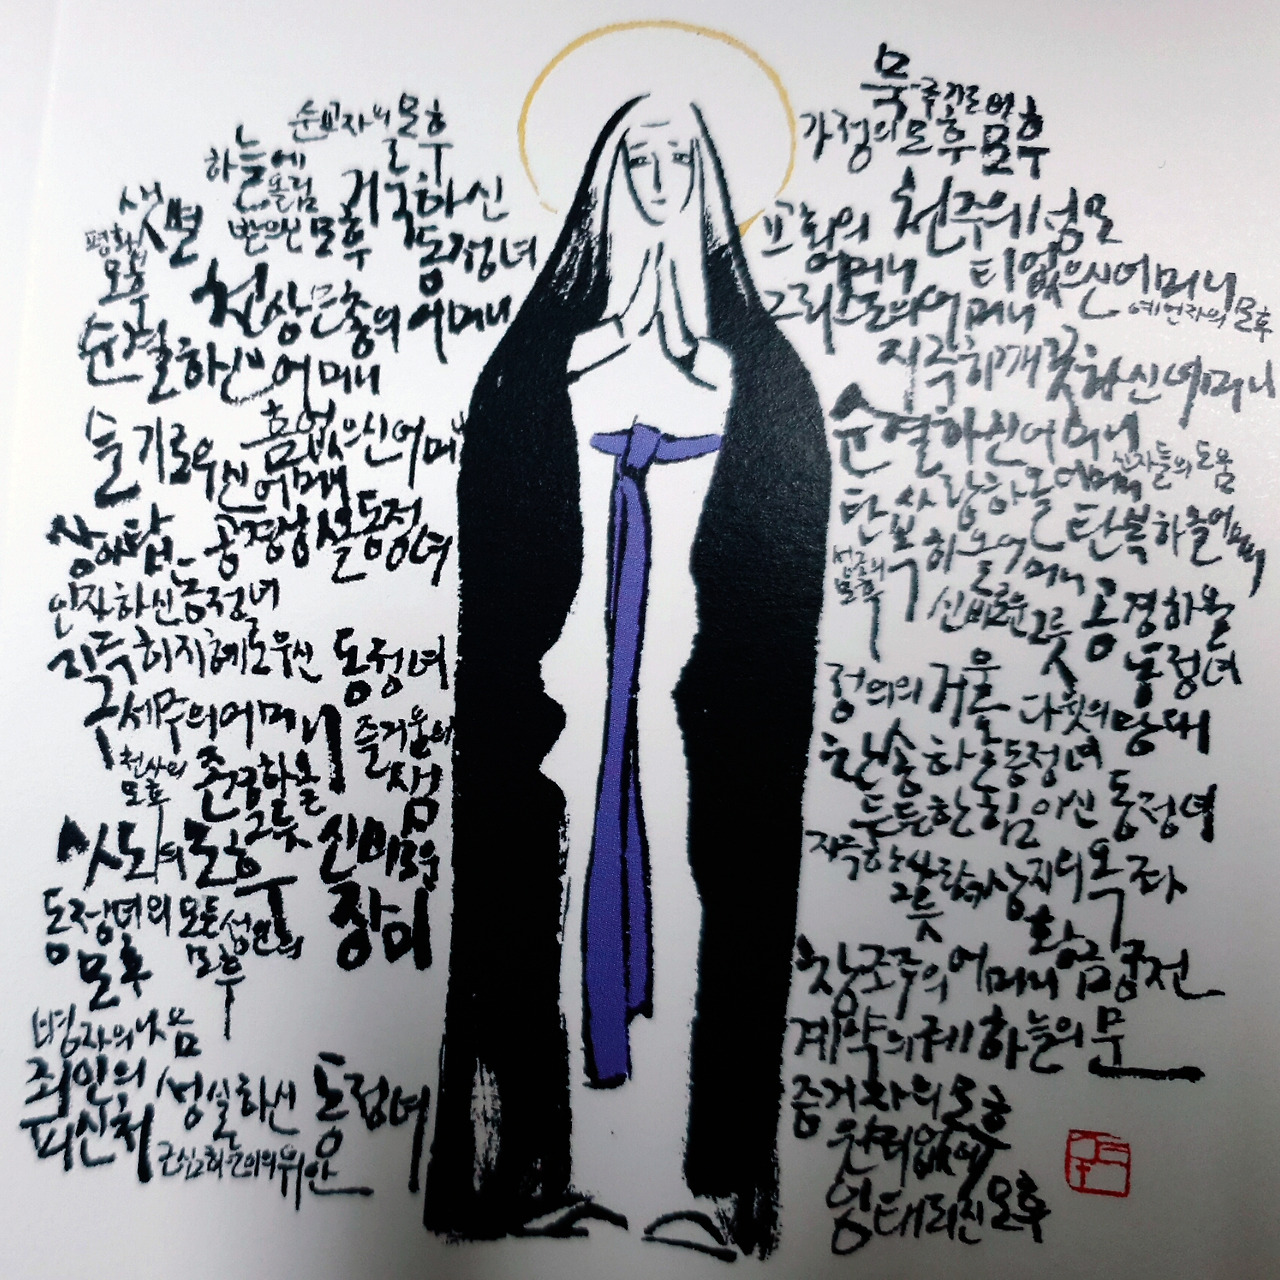 순교자의 모후
하늘에
올림
받으신 모후
지극하신
동정녀
샛별
평화의
모후
천상은총의 어머니
순결하신 어머니
흠없으신 어머니
슬기로우신 어머니
상아탑
공경하올 동정녀
인자하신 동정녀
지극히 지혜로우신 동정녀
구세주의 어머니
즐거움의
샘
천사의
모후
존경하올
그릇
사도의 모후
신비로운
장미
동정녀의
모후
모든 성인의
모후
병자의 나음
죄인의
피신처
성실하신 동정녀
근심하는 이의 위안
묵주기도의
모후
가정의 모후
천주의 성모
교회의
어머니
티없으신 어머니
그리스도의 어머니
예언자의 모후
지극히 깨끗하신 어머니
순결하신 어머니
신자들의 도움
사랑하올 어머니
탄복하올 어머니
탄복하올 어머니
성조의
모후
신비로운 그릇
공경하올
동정녀
정의의 거울
다윗의 망대
찬송하올 동정녀
든든한 힘이신 동정녀
지극한 사랑의
그릇
상지의 옥좌
황금 궁전
창조주의 어머니
계약의 궤
하늘의 문
증거자의 모후
원죄없이
잉태되신 모후